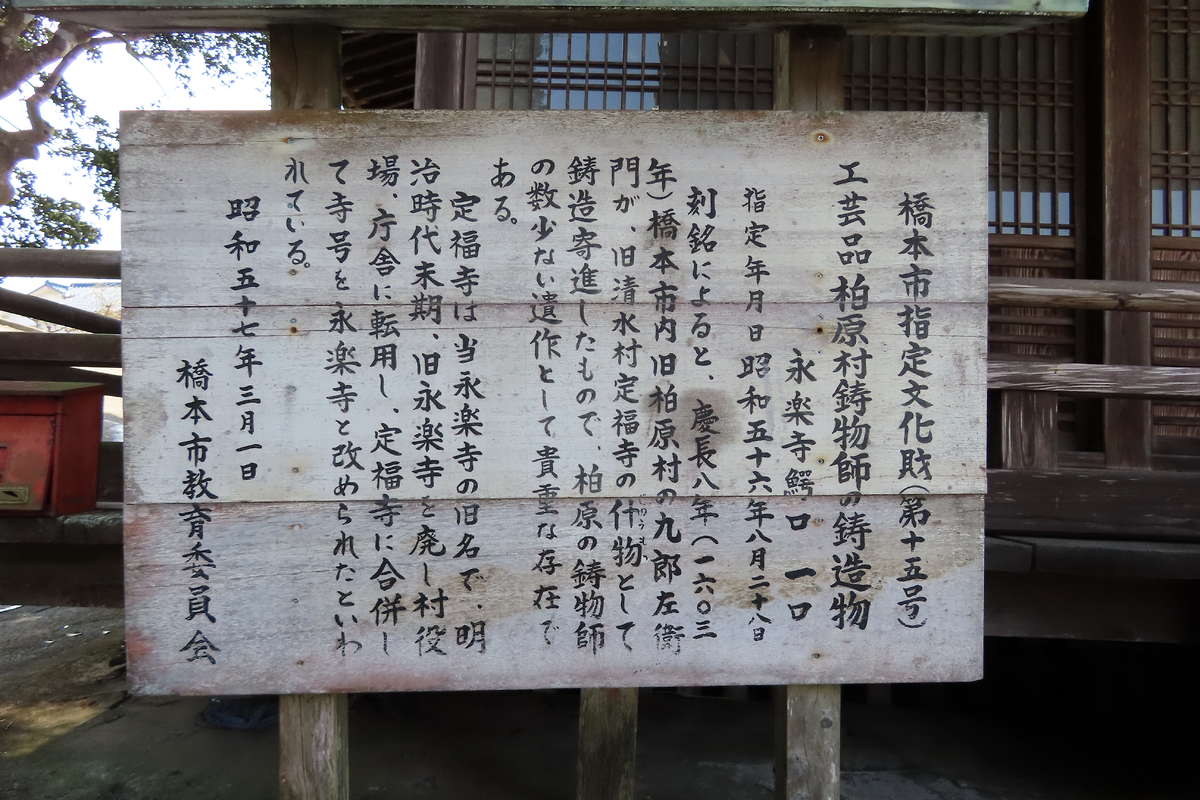 橋本市指定文化財(第十五号)
工芸品柏原村鋳物師の鋳造物
永楽寺鰐口 一口
指定年月日 昭和五十六年八月二十八日
刻銘によると、慶長八年(一六〇三
年)橋本市内旧柏原村の九郎左衛
門が、旧清水村定福寺の什物として
鋳造寄進したもので、柏原の鋳物師
の数少ない遺作として貴重な存在で
ある。
定福寺は当永楽寺の旧名で、明
治時代末期、旧永楽寺を廃し村役
場、庁舎に転用し、定福寺に合併し
て寺号を永楽寺と改められたといわ
れている。
昭和五十七年三月一日
橋本市教育委員会